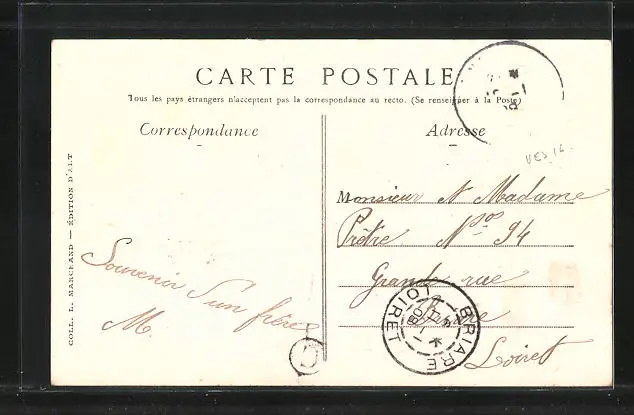 CARTE POSTALE
Tous les pays étrangers n'acceptent pas la correspondance au recto. (Se renseigner à la Poste)
Correspondance
Adresse
COLL. L. MARCHAND — ÉDITION D'ART
Souvenir d'un frère
M.
Monsieur N Madame
Prêtre Nos 94
Grande rue
Briare
Loiret
BRIARE
LOIRET